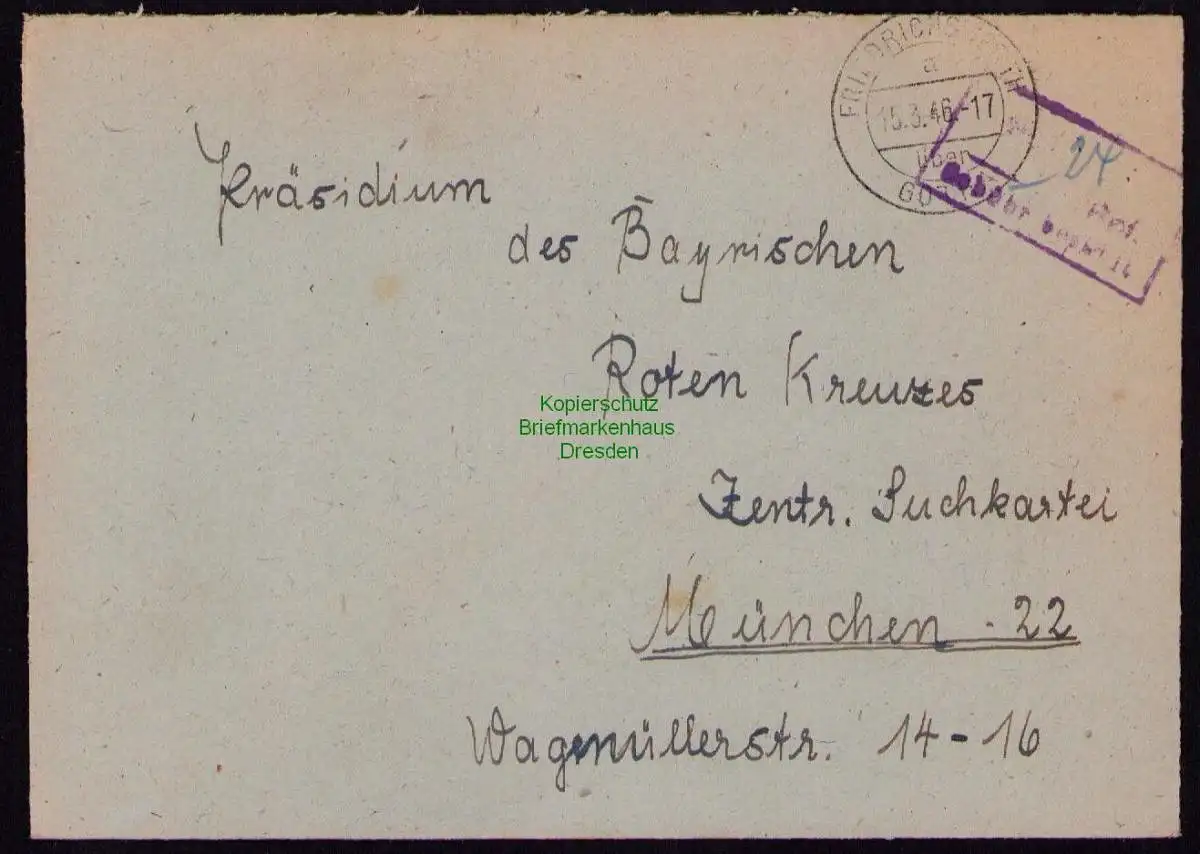 a
15.3.46.-17
über
24
Rpf.
Gebühr bezahlt
Präsidium
des Bayrischen
Roten Kreuzes
Kopierschutz
Briefmarkenhaus
Dresden
Zentr. Suchkartei
München - 22
Wagmüllerstr. 14-16